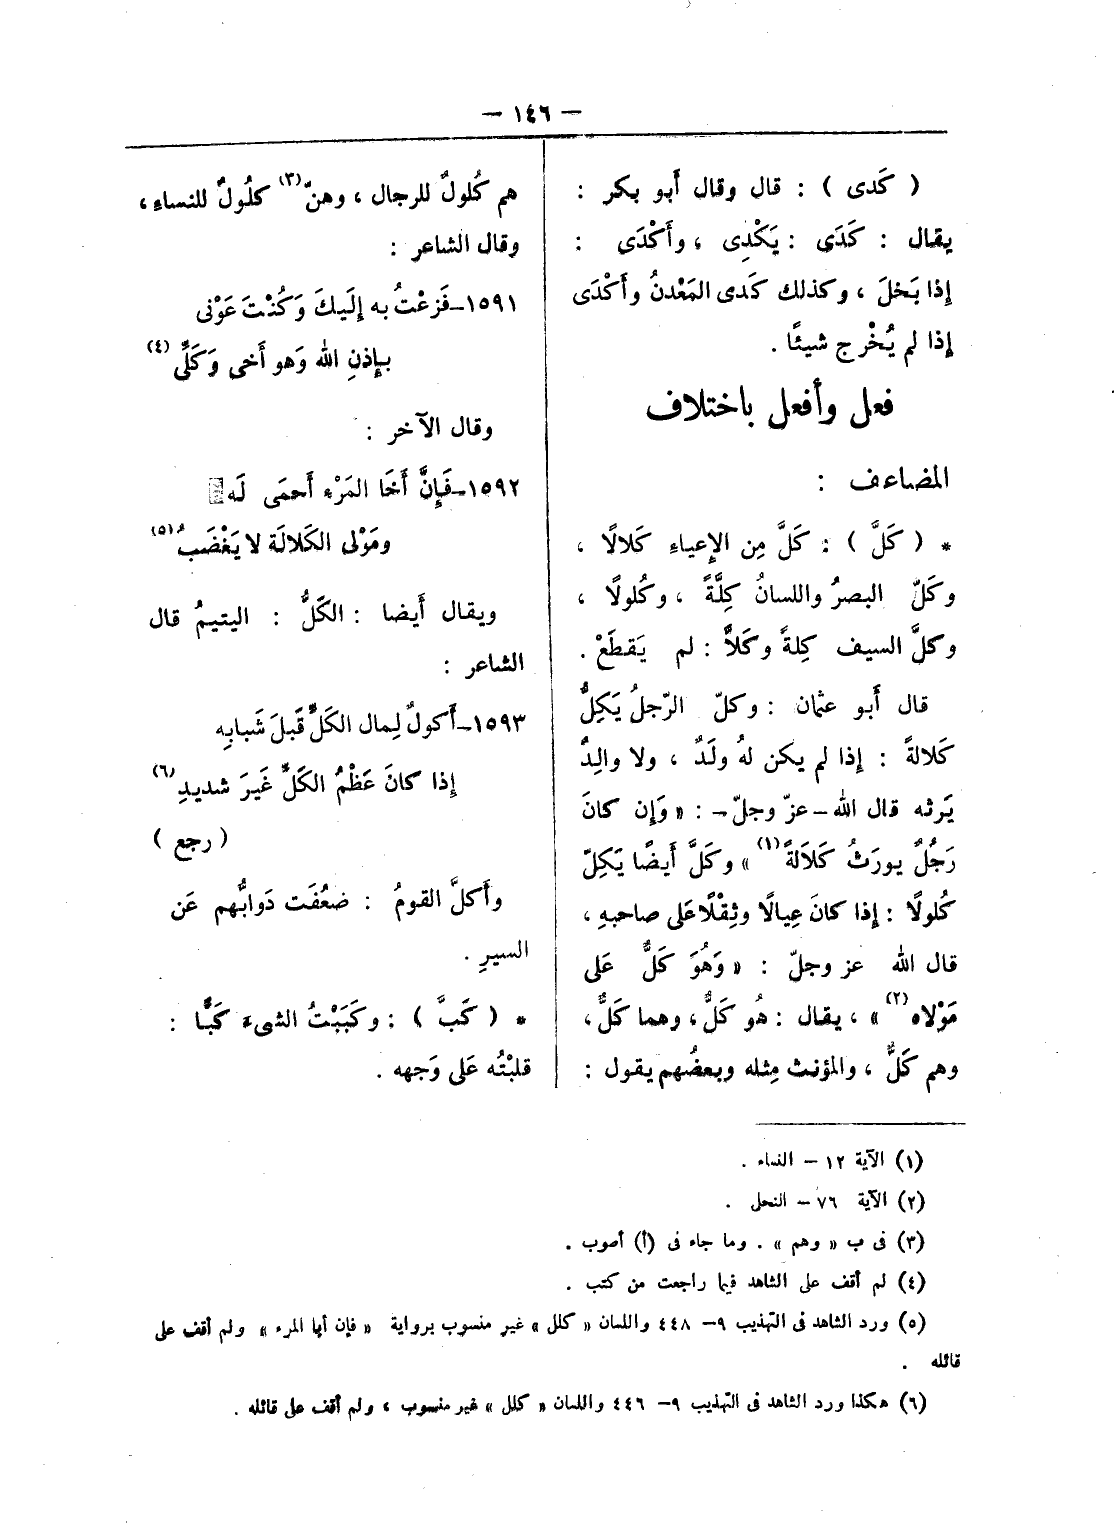 — ١٤٦ —
( كَدى ) : قال وقال أَبو بكر :
يقال : كَدَى : يَكْدِى ، وأَكْدَى :
إِذا بَخلَ ، وكذلك كَدى المَعْدنُ وأَكْدَى
إذا لم يُخْرج شيئًا .
فعل وأفعل باختلاف
المضاعف :
* ( كَلَّ ) : كَلَّ مِن الإِعياءِ كَلالًا ،
وكَلّ البصرُ واللسانُ كِلَّةً ، وكُلولًا ،
وكلَّ السيف كِلةً وكَلاًّ : لم يَقطَعْ .
قال أَبو عثمان : وكلّ الرّجلُ يَكِلُّ
كَلالةً : إذا لم يكن لهُ ولَدٌ ، ولا والِدٌ
يَرثه قال الله – عزّ وجلّ – : « وَإِن كانَ
رَجُلٌ يورَثُ كَلَالَةً (١) » وكَلَّ أَيضًا يَكِلّ
كُلولًا : إِذا كانَ عِيالًا وثِقْلًا عَلى صاحبهِ ،
قال الله عز وجلّ : « وَهُوَ كَلٌّ عَلى
مَوْلاه (٢) » ، يقال : هُو كَلٌّ ، وهما كَلٌّ ،
وهم كَلٌّ ، والمؤنث مِثله وبعضُهم يقول :
هم كُلولٌ للرجال ، وهنّ (٣) كلُولٌ للنساءِ ،
وقال الشاعر :
١٥٩١ – فَزعْتُ به إِلَيكَ وَكُنْتَ عَوْنى
بإِذنِ الله وَهو أَخى وَكَلِّى (٤)
وقال الآخر :
١٥٩٢ – فَإِنَّ أَخَا المَرْءِ أَحمَى لَه
ومَوْلى الكَلالَة لا يَغْضَبُ (٥)
ويقال أَيضا : الكَلُّ : اليتيمُ قال
الشاعر :
١٥٩٣ – أَكولٌ لِمال الكَلِّ قَبلَ شَبابِه
إِذا كانَ عَظْمُ الكَلِّ غَيرَ شديدِ (٦)
( رجع )
وأَكلَّ القومُ : ضعُفَت دَوابُّهم عَن
السيرِ .
* ( كَبَّ ) : وكَبَبْتُ الشىءَ كَبًّا :
قلبْتُه عَلى وَجهه .
(١) الآية ١٢ – النساء .
(٢) الآية ٧٦ – النحل .
(٣) فى ب « وهم » . وما جاء فى (أ) أصوب .
(٤) لم أقف على الشاهد فيما راجعت من كتب .
(٥) ورد الشاهد فى التهذيب ٩ – ٤٤٨ واللسان « كلل » غير منسوب برواية « فإن أبا المرء » ولم أقف على
قائله .
(٦) هكذا ورد الشاهد فى التهذيب ٩ – ٤٤٦ واللسان « كلل » غير منسوب ، ولم أقف على قائله .